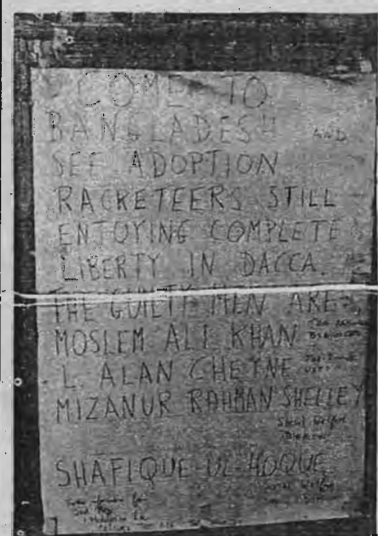 COME TO
BANGLADESH AND
SEE ADOPTION
RACKETEERS STILL
ENJOYING COMPLETE
LIBERTY IN DACCA.
THE GUILTY MEN ARE
MOSLEM ALI KHAN
L. ALAN CHEYNE
MIZANUR RAHMAN SHELLEY
Social Welfare
SHAFIQUE-UL-HOQUE
Social Welfare